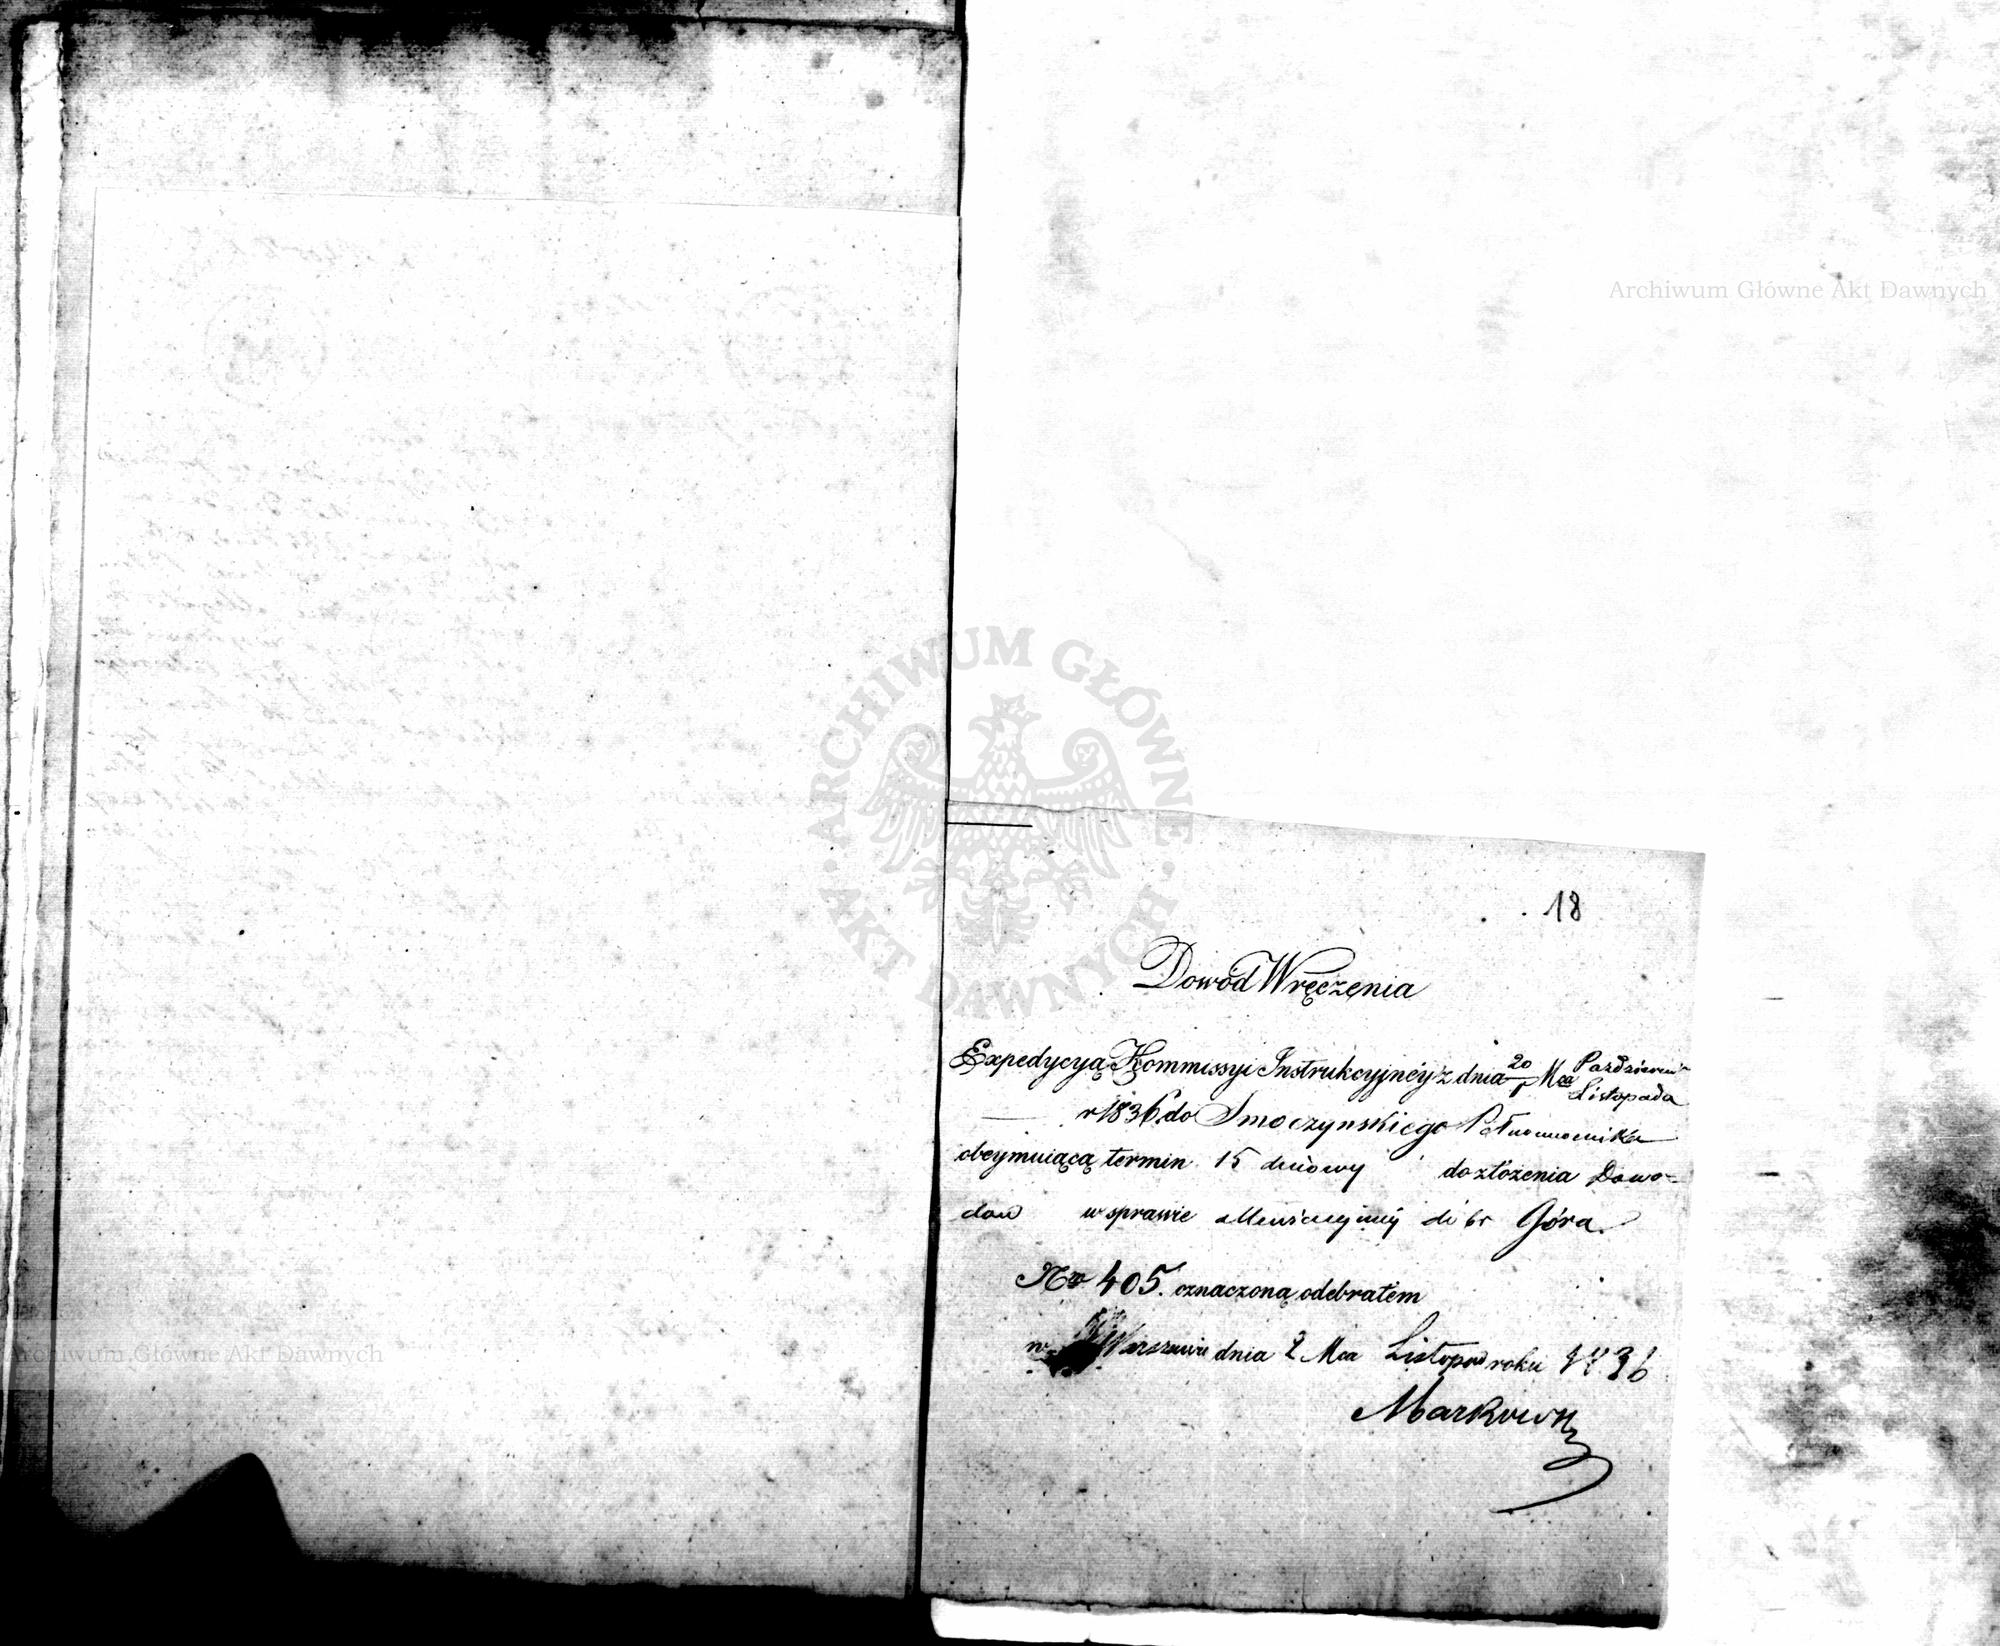 18
Dowód Wręczenia
Expedycyą Kommissyi Instrukcyjnéy z dnia 20/1 Mca Październik
Listopada
r 1836. do Smoczynskiego Pełnomocnika
obeymuiącą termin 15 dniowy do złożenia Dowo-
dow w sprawie dóbr Góra.
Nro 405. oznaczoną odebrałem
w Warszawie dnia 2 Mca Listopad roku 1836
Archiwum Główne Akt Dawnych
Archiwum Główne Akt Dawnych
ARCHIWUM GŁÓWNE AKT DAWNYCH